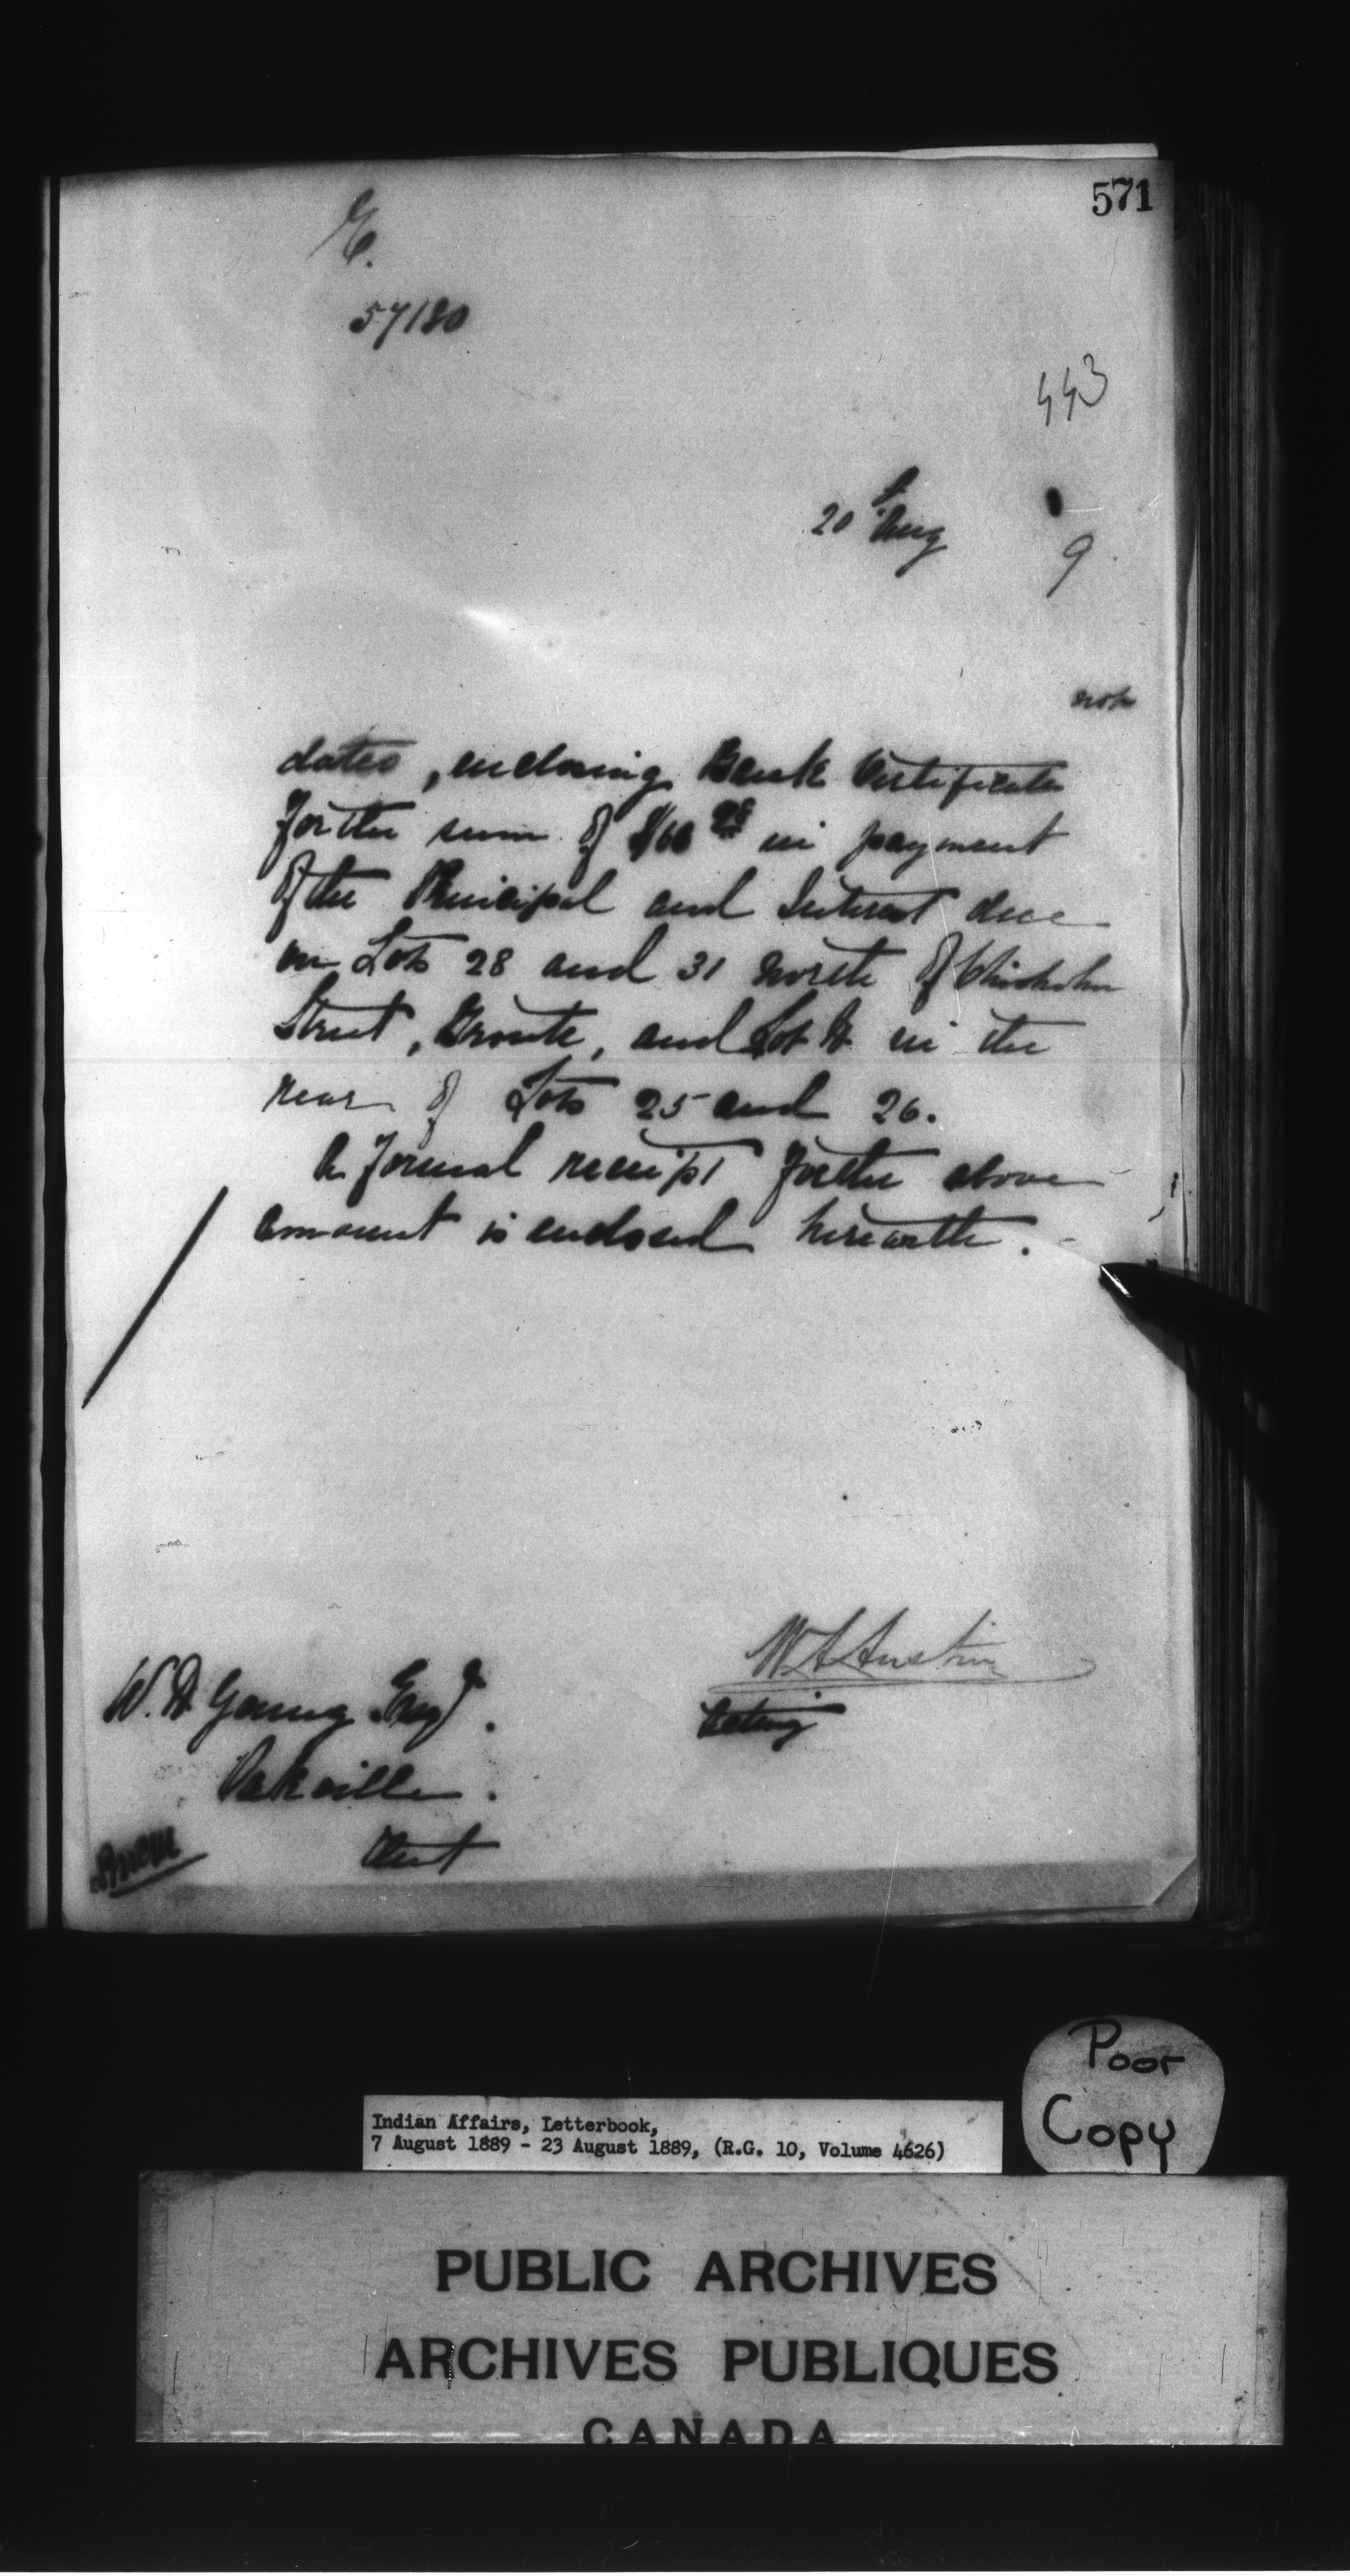 571
E.
57180
443
20th Aug
9
not
dated, enclosing Bank Certificate
for the sum of in payment
of the Principal and Interest due
on Lots 28 and 31 north of Chisholm
Street, Bronte, and Lot A in the
rear of Lots 25 and 26.
A formal receipt for the above
amount is enclosed herewith.
W A Austin
Acting
W. A Young Esqr.
Oakville.
Ont
Indian Affairs, Letterbook,
7 August 1889 - 23 August 1889, (R.G. 10, Volume 4626)
Poor
Copy
PUBLIC ARCHIVES
ARCHIVES PUBLIQUES
CANADA